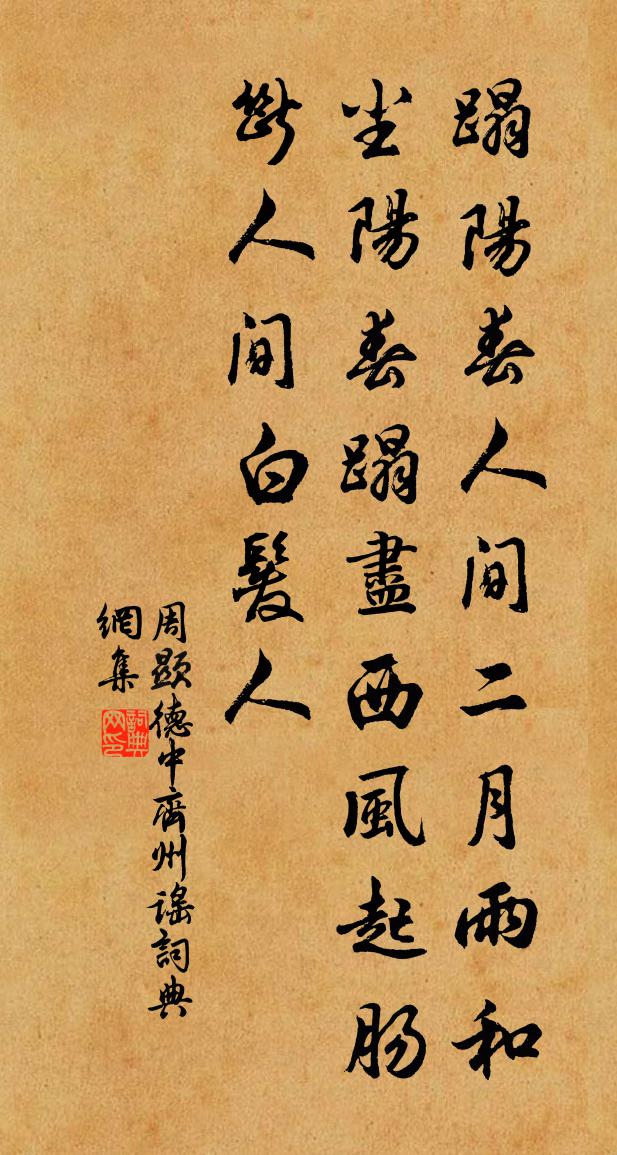 蹋陽春人間二月雨和
尘陽春蹋盡西風起腸
斷人間白髮人
周顯德中齊州謠詞典
網集
詞典網印